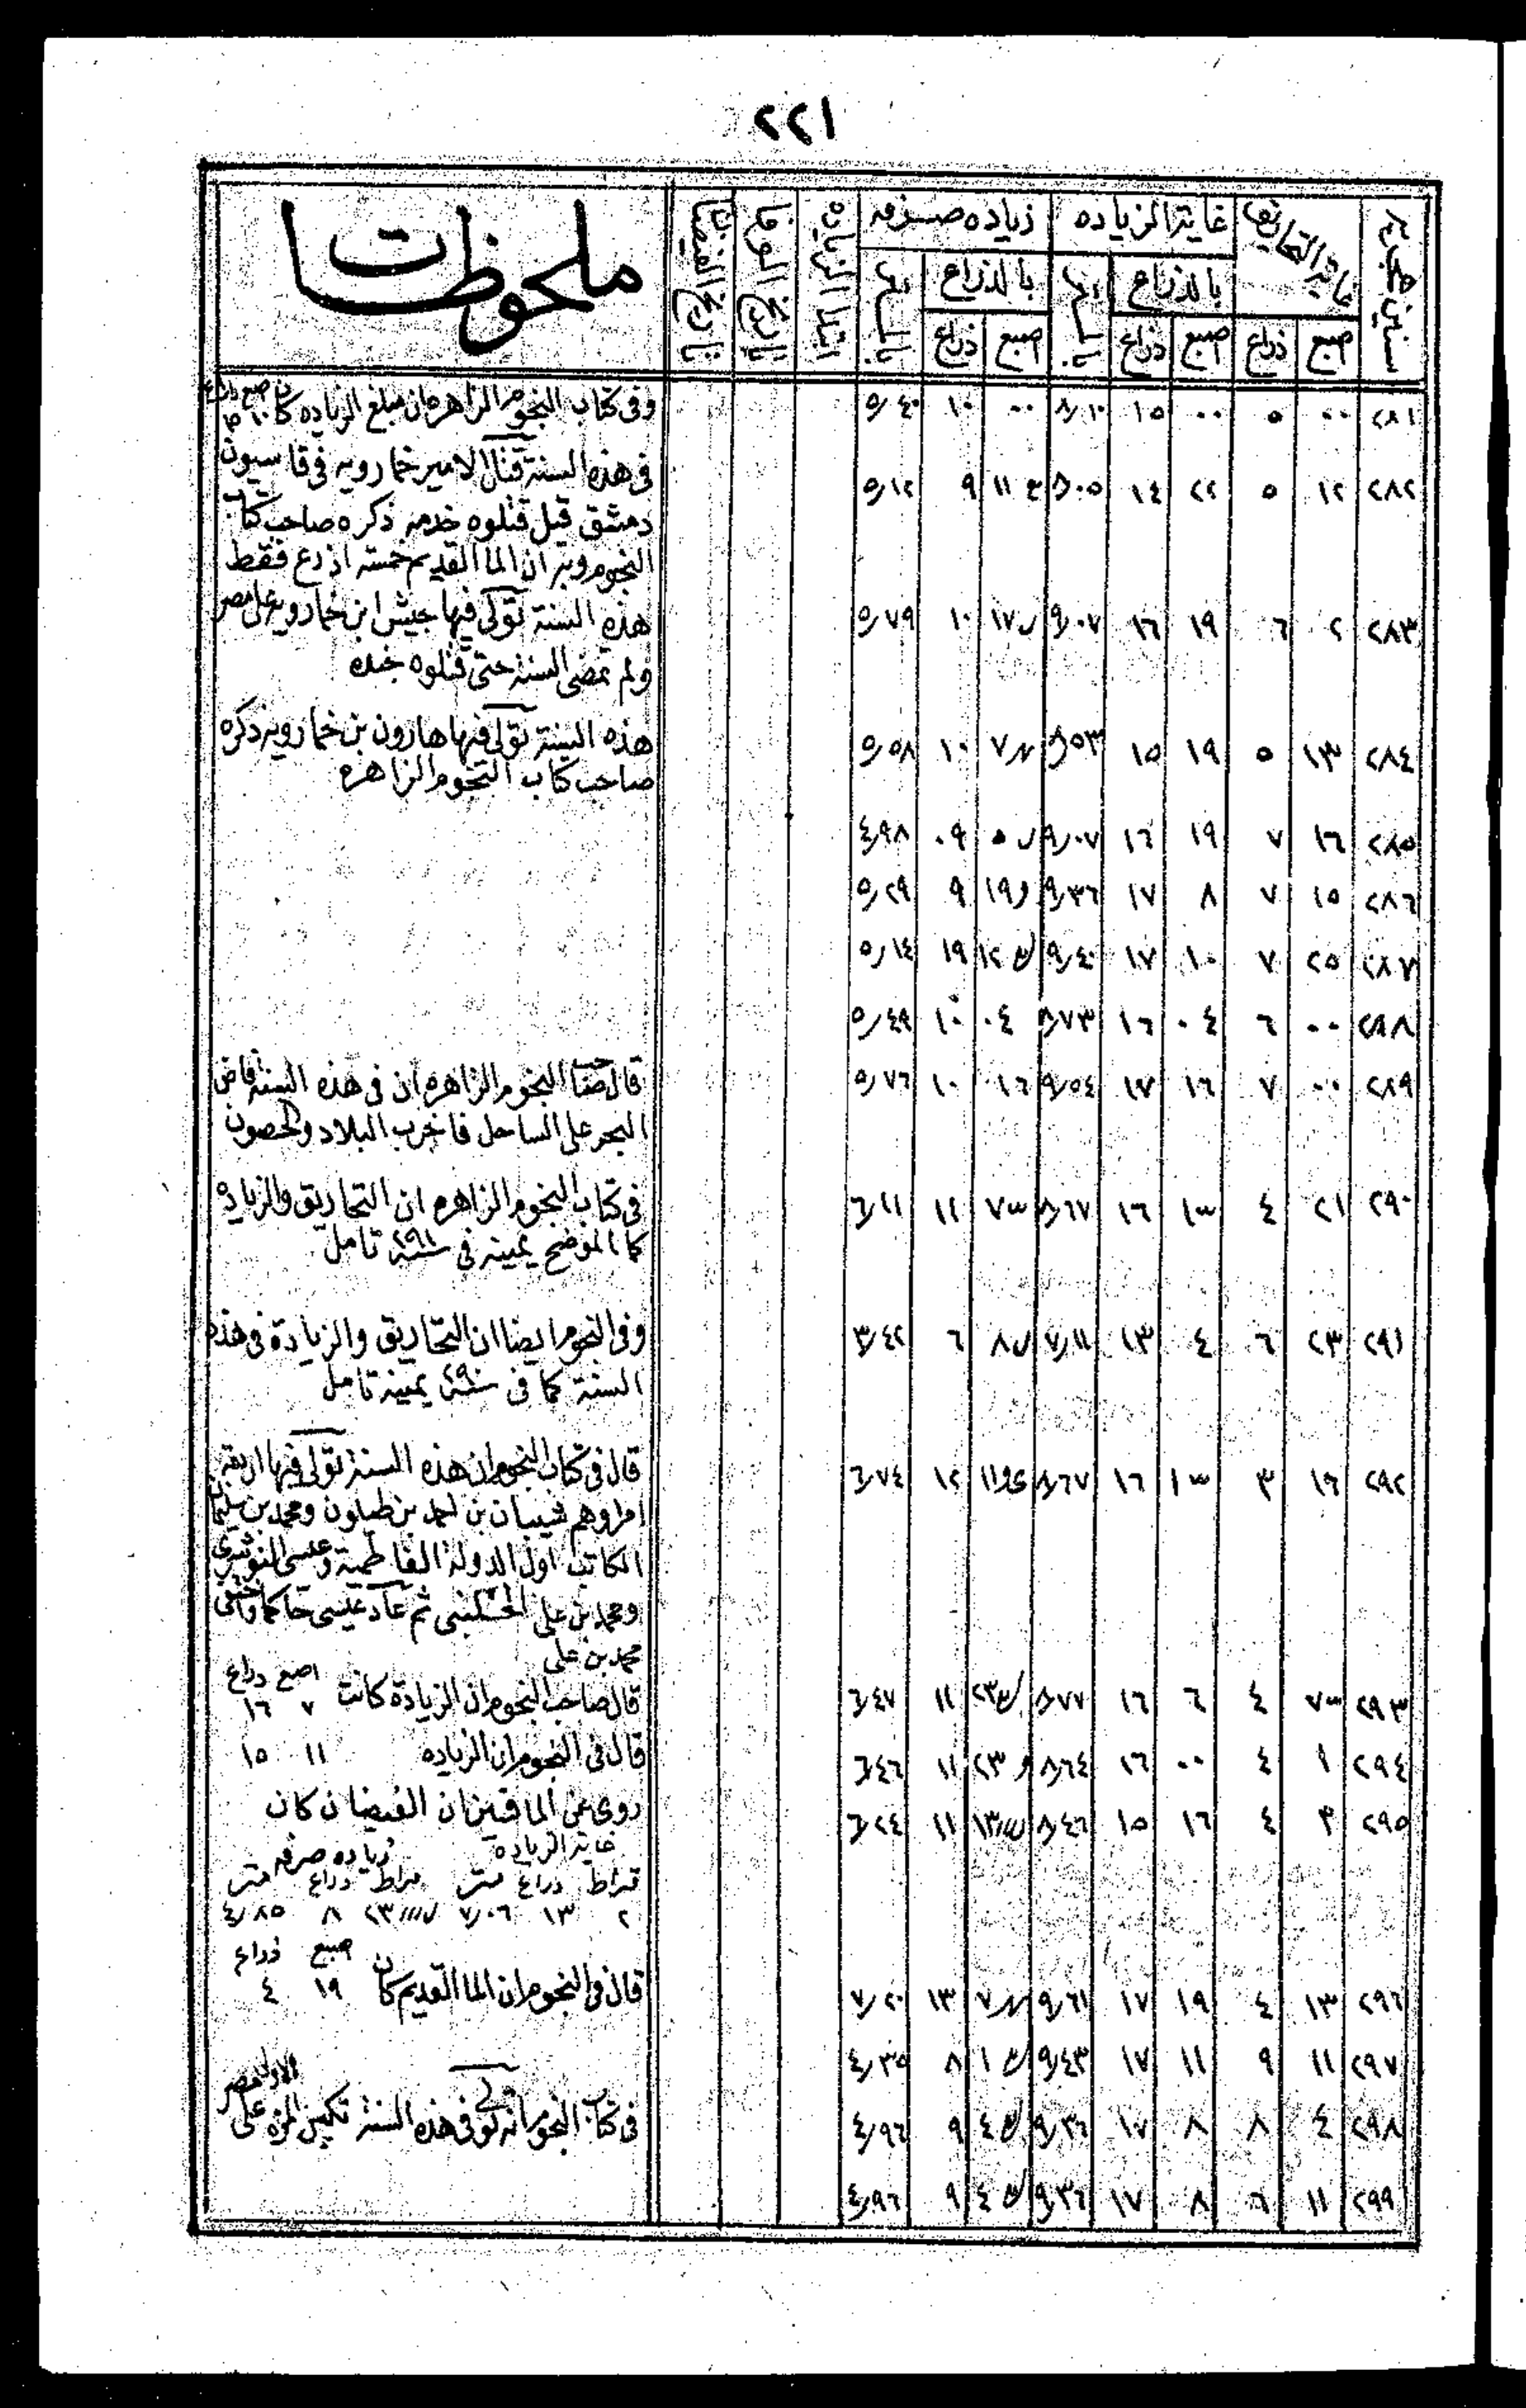 ٢٢١
سنين هجريه غاية التحاريق غاية الزياده زياده صرفه ابتدا الزياده تاريخ الوفا تاريخ الفيضان ملحوظات
بالذراع بالمتر بالذراع بالمتر
اصبع ذراع اصبع ذراع اصبع ذراع
٢٨١ ٠٠ ٥ ٠٠ ١٥ ٨٫١٠ ٠٠ ١٠ ٥٫٤٠ وفى كتاب النجوم الزاهره ان مبلغ الزياده كان
٢٨٢ ١٢ ٥ ٢٢ ١٤ ٨٫٠٥ ١١ ٩ ٥٫١٢ فى هذه السنة قتل الامير خمارويه فى قاسيون
دمشق قيل قتلوه خدمه ذكره صاحب كتاب
النجوم وبه ان الما القديم خمسه اذرع فقط
٢٨٣ ٢ ٦ ١٩ ١٦ ٩٫٠٧ ١٧ ١٠ ٥٫٧٩ هذه السنة تولى فيها جيش ابن خمارويه على مصر
ولم تمضى السنه حتى قتلوه جنده
٢٨٤ ١٣ ٥ ١٩ ١٥ ٨٫٥٣ ٧ ١٠ ٥٫٥٨ هذه السنة تولى فيها هارون بن خمارويه ذكره
صاحب كتاب النجوم الزاهره
٢٨٥ ١٦ ٧ ١٩ ١٦ ٩٫٠٧ ٥ ٠٩ ٤٫٩٨
٢٨٦ ١٥ ٧ ٨ ١٧ ٩٫٣٦ ١٩ ٩ ٥٫٢٩
٢٨٧ ٢٥ ٧ ١٠ ١٧ ٩٫٤٠ ١٢ ١٩ ٥٫١٤
٢٨٨ ٠٠ ٦ ٠٤ ١٦ ٨٫٧٣ ٠٤ ١٠ ٥٫٤٩
٢٨٩ ٠٠ ٧ ١٦ ١٧ ٩٫٥٤ ١٦ ١٠ ٥٫٧٦ قال صاحب النجوم الزاهره ان فى هذه السنة فاض
البحر على الساحل فاخرب البلاد والحصون
٢٩٠ ٢١ ٤ ١٣ ١٦ ٨٫٦٧ ٧ ١١ ٦٫١١ فى كتاب النجوم الزاهره ان التحاريق والزياده
كما الموضح يمينه فى سنة ٢٩١ تامل
٢٩١ ٢٣ ٦ ٤ ١٣ ٧٫١١ ٨ ٦ ٣٫٤٢ وفى النجوم ايضا ان التحاريق والزيادة فى هذه
السنة كما فى سنة ٢٩٠ يمينه تامل
٢٩٢ ١٦ ٣ ١٣ ١٦ ٨٫٦٧ ١١ ١٢ ٦٫٧٤ قال فى كتاب النجوم ان هذه السنة تولى فيها اربعة
امرا وهم شيبان بن احمد بن طيلون ومحمد بن سليمان
الكاتب اول الدولة الفاطمية وعيسى النوشرى
ومحمد بن على الخلنجى ثم عاد عيسى حاكما
محمد بن على
اصبع ذراع
٢٩٣ ٧ ٤ ٦ ١٦ ٨٫٧٧ ٢٣ ١١ ٦٫٤٧ قال صاحب النجوم ان الزيادة كانت ٧ ١٦
٢٩٤ ١ ٤ ٠٠ ١٦ ٨٫٦٤ ٢٣ ١١ ٦٫٤٦ قال فى النجوم ان الزياده ١١ ١٥
٢٩٥ ٣ ٤ ١٦ ١٥ ٨٫٤٦ ١٣ ١١ ٦٫٢٤ روى عن الماقين ان الفيضان كان
غاية الزيادة زياده صرفه
قيراط ذراع متر قيراط ذراع متر
٢ ١٣ ٧٫٠٦ ٢٣ ٨ ٤٫٨٥
اصبع ذراع
٢٩٦ ١٣ ٤ ١٩ ١٧ ٩٫٦١ ٧ ١٣ ٧٫٢٠ قال فى النجوم ان الما القديم كان ١٩ ٤
٢٩٧ ١١ ٩ ١١ ١٧ ٩٫٤٣ ١ ٨ ٤٫٣٥
٢٩٨ ٤ ٨ ٨ ١٧ ٩٫٣٦ ٤ ٩ ٤٫٩٦ فى كتاب النجوم انه تولى فى هذه السنة تكين المره الاولى على مصر
٢٩٩ ١١ ٦ ٨ ١٧ ٩٫٣٦ ٤ ٩ ٤٫٩٦